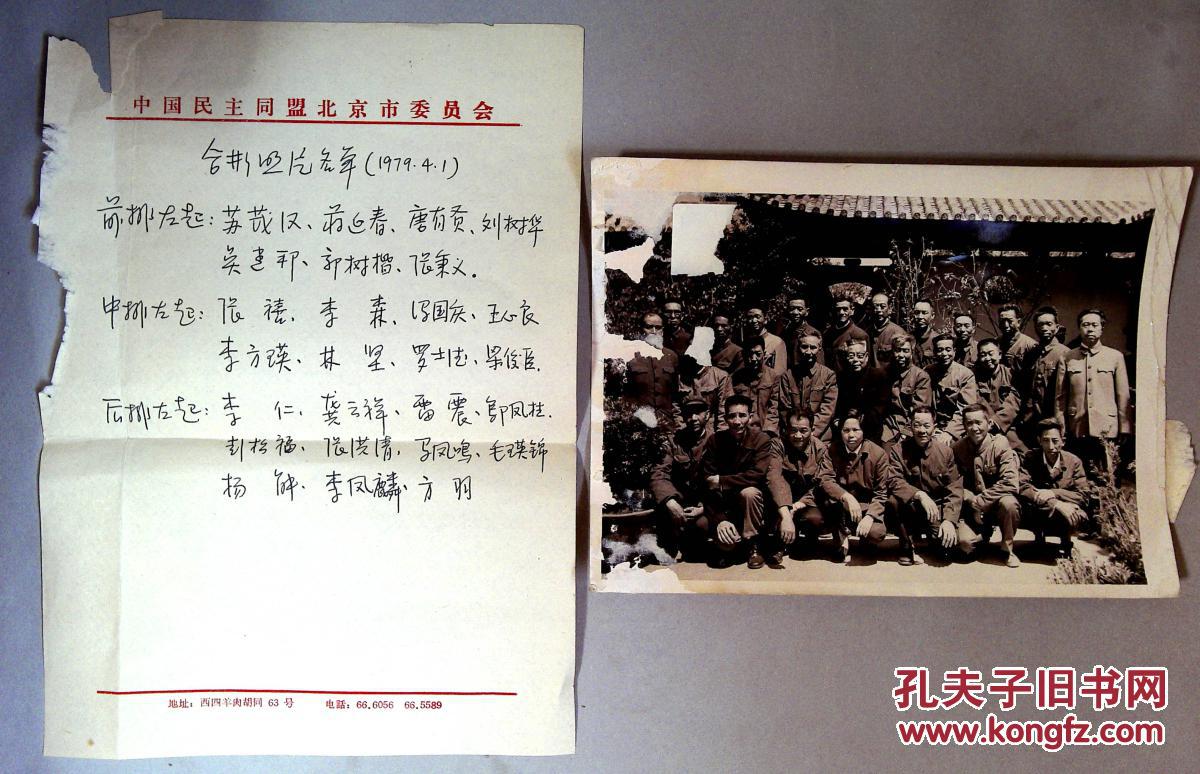 中国民主同盟北京市委员会
合影照片名单(1979.4.1)
前排左起：苏茂汉、蒋迎春、唐有贡、刘树华
吴建邦、郭树楷、张秉义。
中排左起：张 禧、李 森、冯国庆、王心良
李方瑛、林 坚、罗士法、梁俊臣.
后排左起：李 仁、龚云祥、雷震、郭凤桂.
彭松福、张洪清、马凤鸣、毛瑛锦
杨 能、李凤麟、方羽
地址：西四羊肉胡同 63 号 电话：66.6056 66.5589
孔夫子旧书网
www.kongfz.com